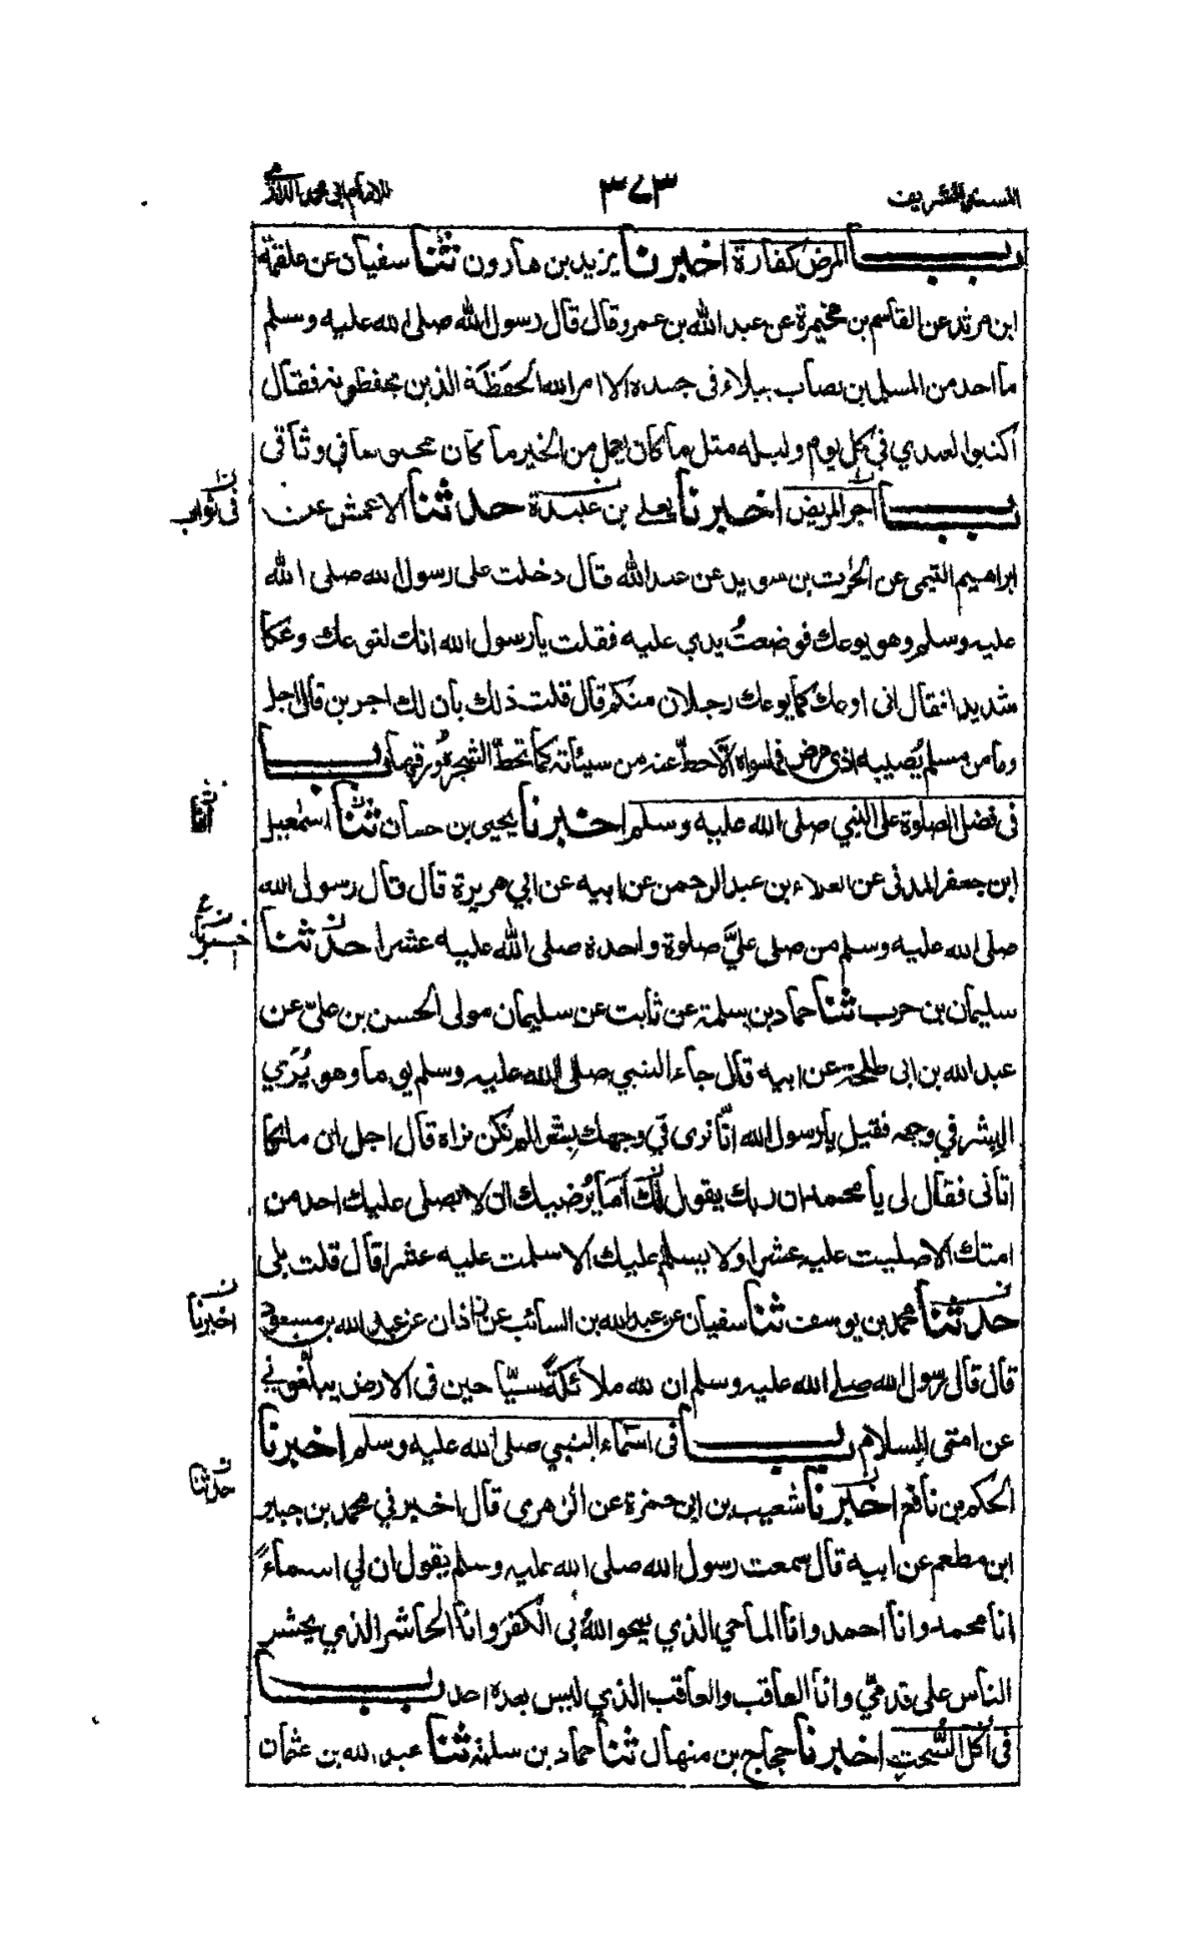 المسند الشريف ٣٧٣ للامام ابى محمد الدارمى
باب المرض كفارة اخبرنا يزيد بن هارون ثنا سفيان عن علقمة
ابن مرثد عن القاسم بن مخيمرة عن عبد الله بن عمرو قال قال رسول الله صلى الله عليه وسلم
ما احد من المسلمين يصاب ببلاء فى جسده الا امر الله الحفظة الذين يحفظونه فقال
اكتبوا لعبدي في كل يوم وليلة مثل ما كان يعمل من الخير ما كان محبوسا في وثاقى
باب اجر المريض اخبرنا يعلى بن عبيدة حدثنا الاعمش عن
فى ثواب
ابراهيم التيمى عن الحرث بن سويد عن عبد الله قال دخلت على رسول الله صلى الله
عليه وسلم وهو يوعك فوضعتُ يدي عليه فقلت يا رسول الله انك لتوعك وعكا
شديدا فقال انى اوعك كما يوعك رجلان منكم قال قلت ذلك بان لك اجرين قال اجل
وما من مسلم يُصيبه اذى مرض فما سواه الّا حطّ عنه من سيئاته كما تحطّ الشجرةُ ورقها باب
فى فضل الصلوة على النبي صلى الله عليه وسلم اخبرنا يحيى بن حسان ثنا اسمعيل
انا
ابن جعفر المدنى عن العلاء بن عبد الرحمن عن ابيه عن ابي هريرة قال قال رسول الله
صلى الله عليه وسلم من صلى عليَّ صلوة واحدة صلى الله عليه عشرا حدثنا
اخبرنا
سليمان بن حرب ثنا حماد بن سلمة عن ثابت عن سليمان مولى الحسن بن علىّ عن
عبد الله بن ابى طلحة عن ابيه قال جاء النبي صلى الله عليه وسلم يوما وهو يُرَي
البشر في وجهه فقيل يا رسول الله انّا نرى في وجهك بشرا لم نكن نراه قال اجل ان ملكا
اتانى فقال لى يا محمد ان ربك يقول لك اما يُرضيك ان لا يصلى عليك احد من
امتك الا صليت عليه عشرا ولا يسلم عليك الا سلمت عليه عشرا قال قلت بلى
حدثنا محمد بن يوسف ثنا سفيان عن عبد الله بن السائب عن زاذان عن عبد الله بن مسعود
اخبرنا
قال قال رسول الله صلى الله عليه وسلم ان لله ملائكةً سيّاحين فى الارض يبلّغوني
عن امتى السلام باب فى اسماء النبي صلى الله عليه وسلم اخبرنا
الحكم بن نافع اخبرنا شعيب بن ابى حمزة عن الزهرى قال اخبرني محمد بن جبير
حدثنا
ابن مطعم عن ابيه قال سمعت رسول الله صلى الله عليه وسلم يقول ان لي اسماءً
انا محمد وانا احمد وانا الماحي الذي يمحو اللهُ بى الكفر وانا الحاشر الذي يحشر
الناس على قدمىّ وانا العاقب والعاقب الذي ليس بعده احد باب
فى أكل السُّحت اخبرنا حجاج بن منهال ثنا حماد بن سلمة ثنا عبد الله بن عثمان